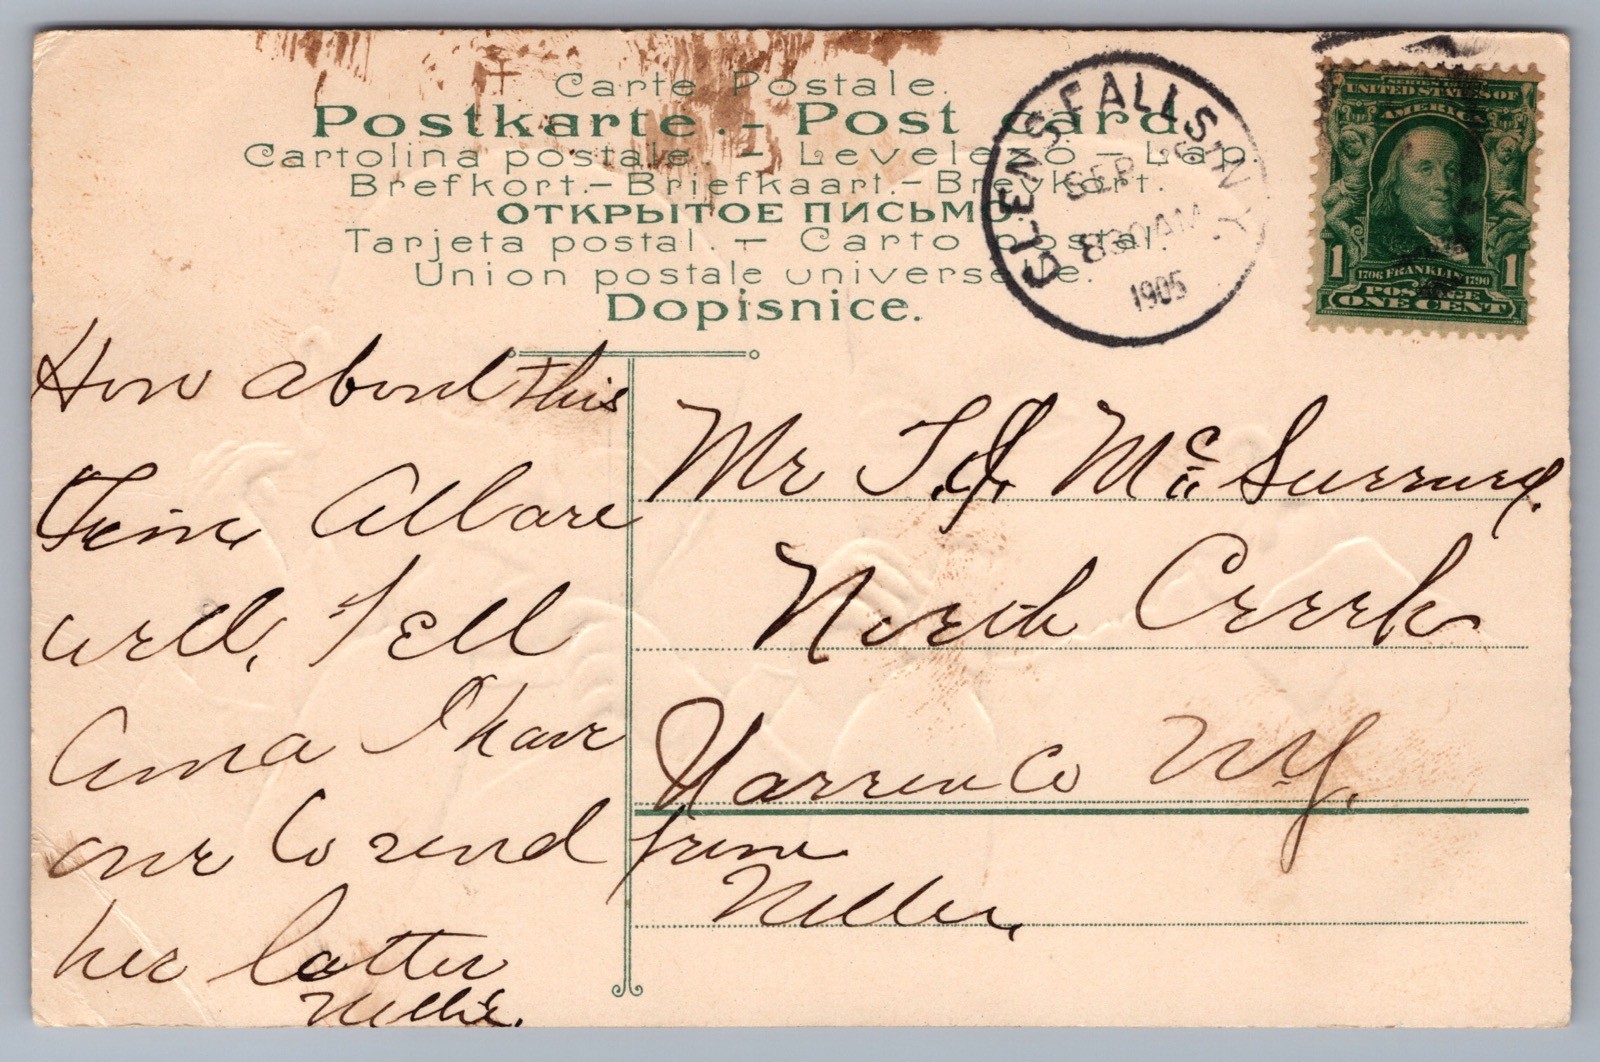 Carte Postale.
Postkarte.- Post card.
Cartolina postale. - Levelező - Lap.
Brefkort.- Briefkaart.- Brevkort.
ОТКРЫТОЕ ПИСЬМО
Tarjeta postal. - Carto postal.
Union postale universelle.
Dopisnice.
GLENS FALLS N.Y.
SEP
830AM
1905
SERIES
UNITED STATES OF
AMERICA
1706 FRANKLIN 1790
1 1
POSTAGE
ONE CENT
How about this
Time All are
well, Tell
Anna I have
one to send
her latter
Nellie.
Mr T.J. Mc
North Creek
Warren Co N.Y.
from
Nellie.